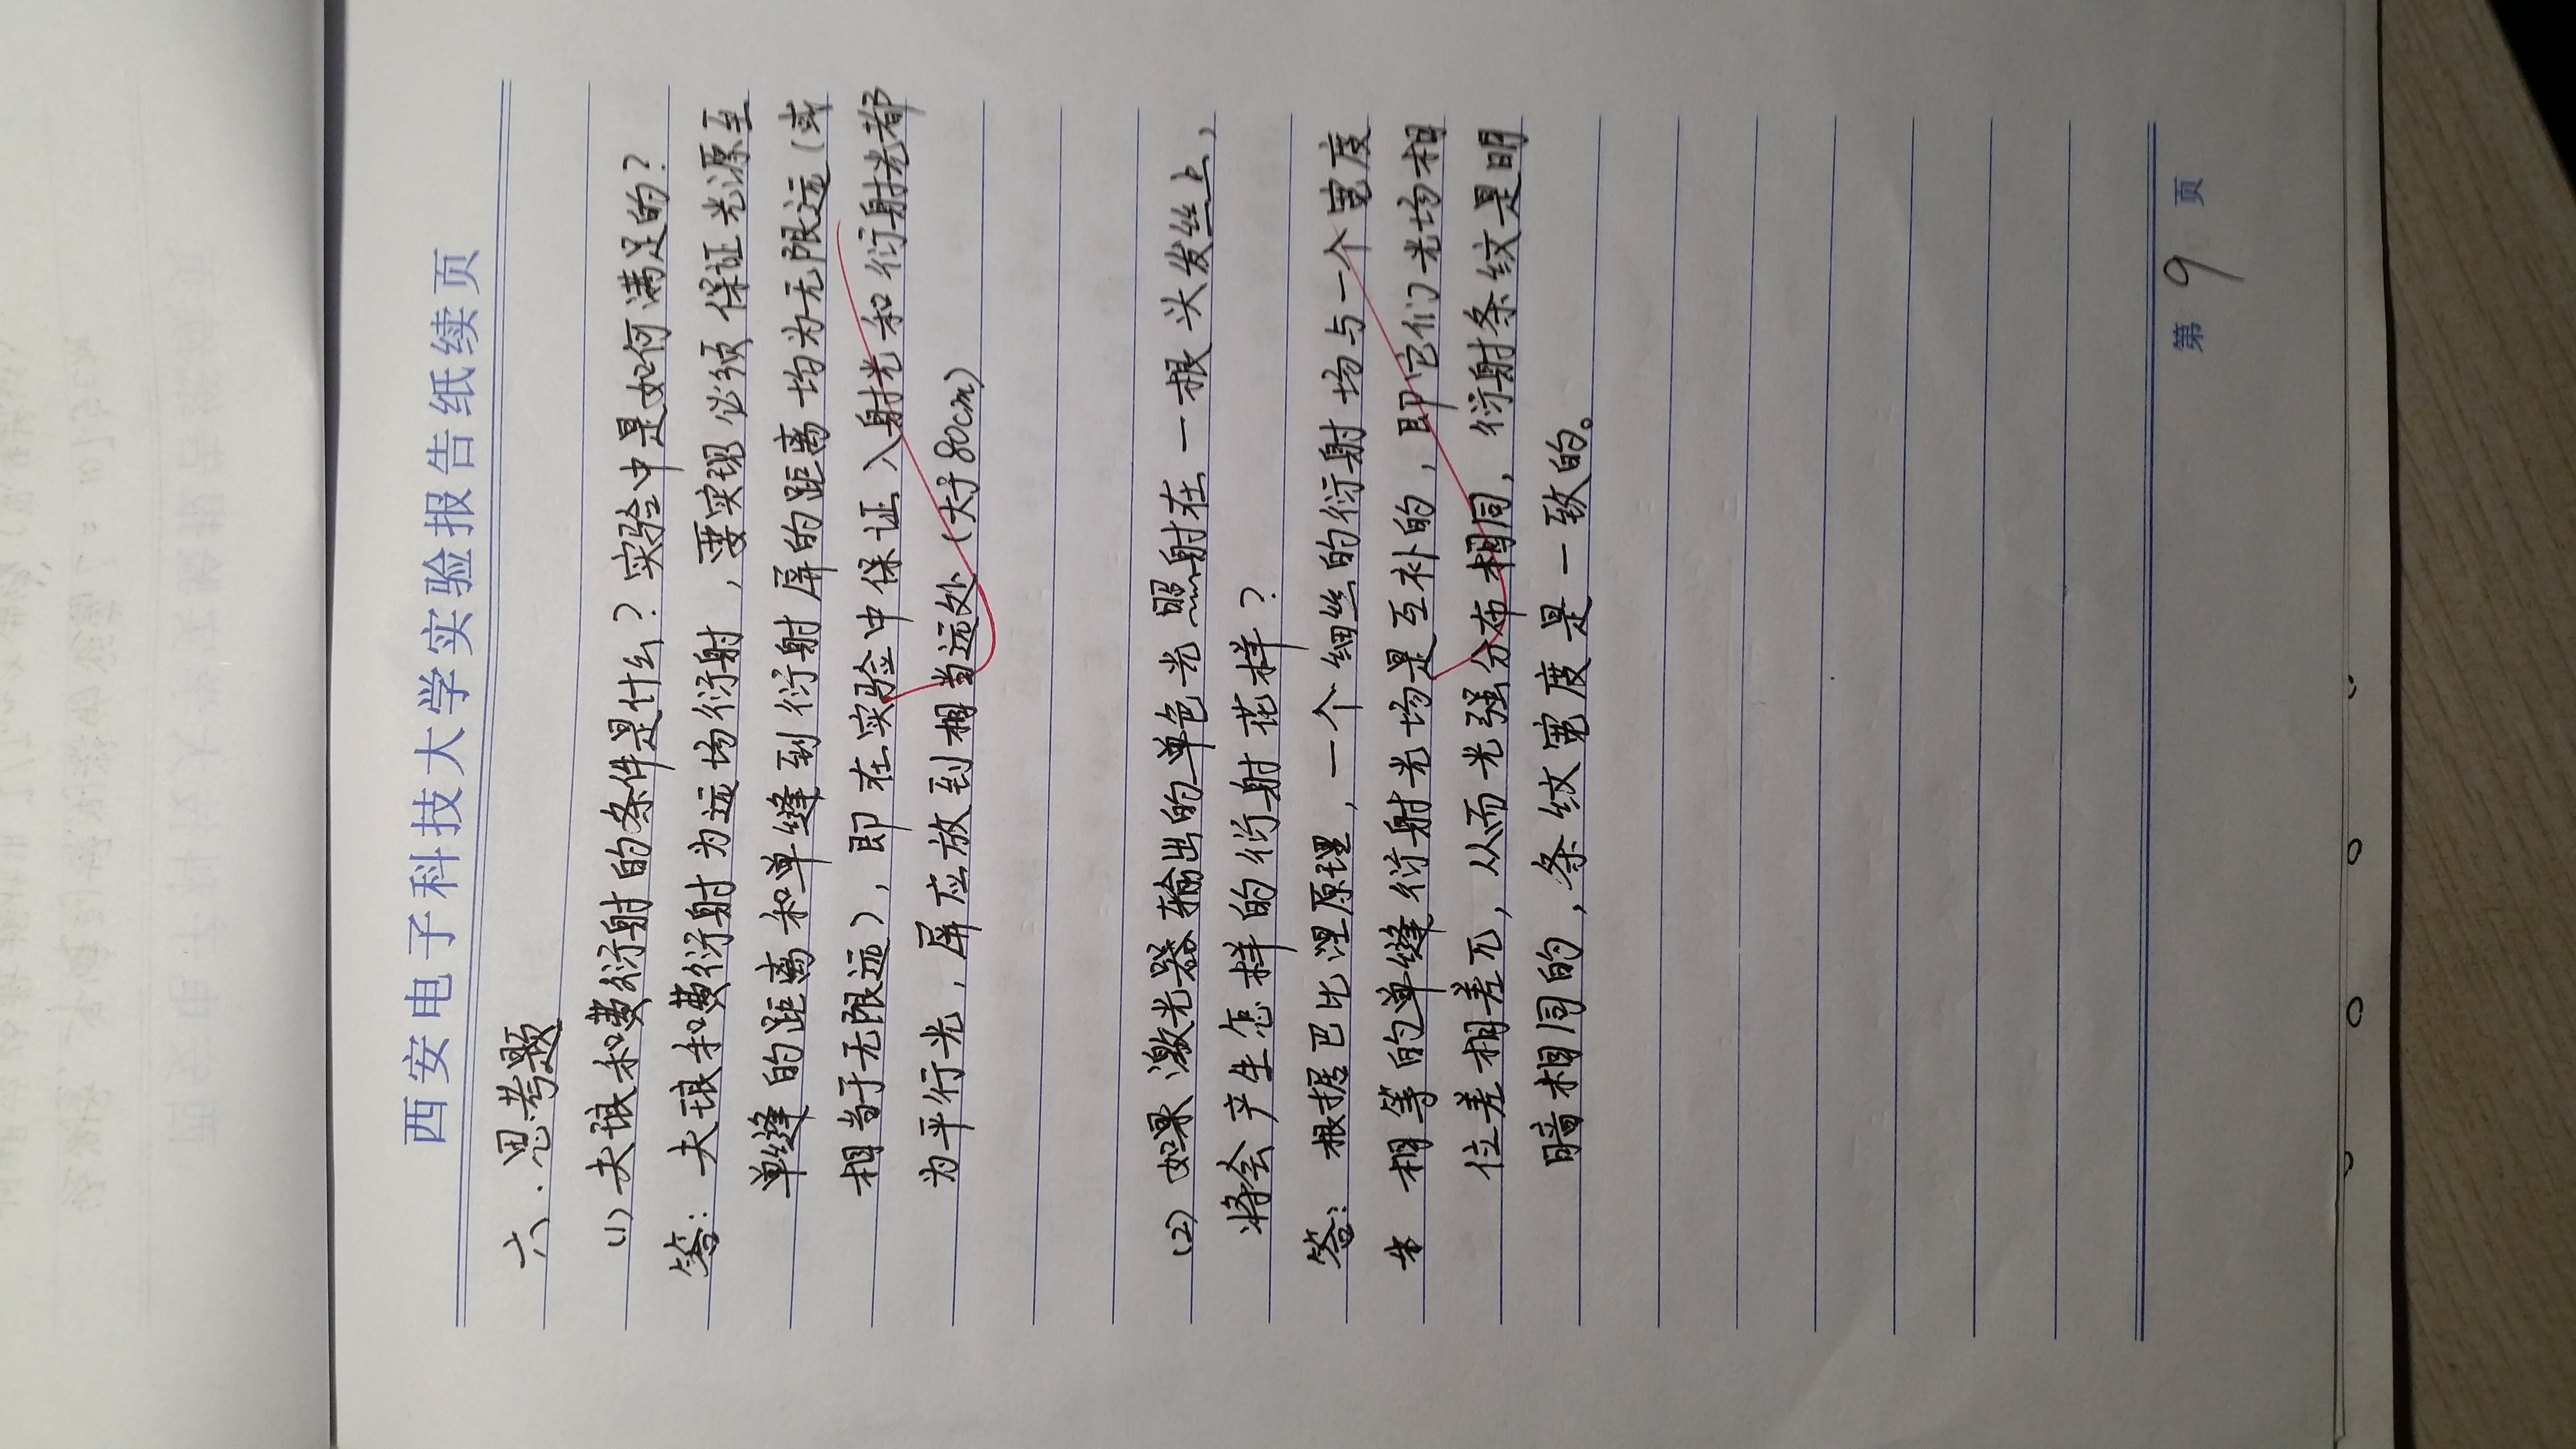 西安电子科技大学实验报告纸续页
六.思考题
(1)夫琅和费衍射的条件是什么?实验中是如何满足的?
答:夫琅和费衍射为远场衍射,要实现必须保证光源至
单缝的距离和单缝到衍射屏的距离均为无限远(或
相当于无限远),即在实验中保证入射光和衍射光都
为平行光,屏应放到相当远处(大于80cm)
(2)如果激光器输出的单色光照射在一根头发丝上,
将会产生怎样的衍射花样?
答:根据巴比涅原理,一个细丝的衍射场与一个宽度
相等的单缝衍射光场是互补的,即它们光场相
位差相差π,从而光强分布相同,衍射条纹是明
暗相同的,条纹宽度是一致的。
第 9 页